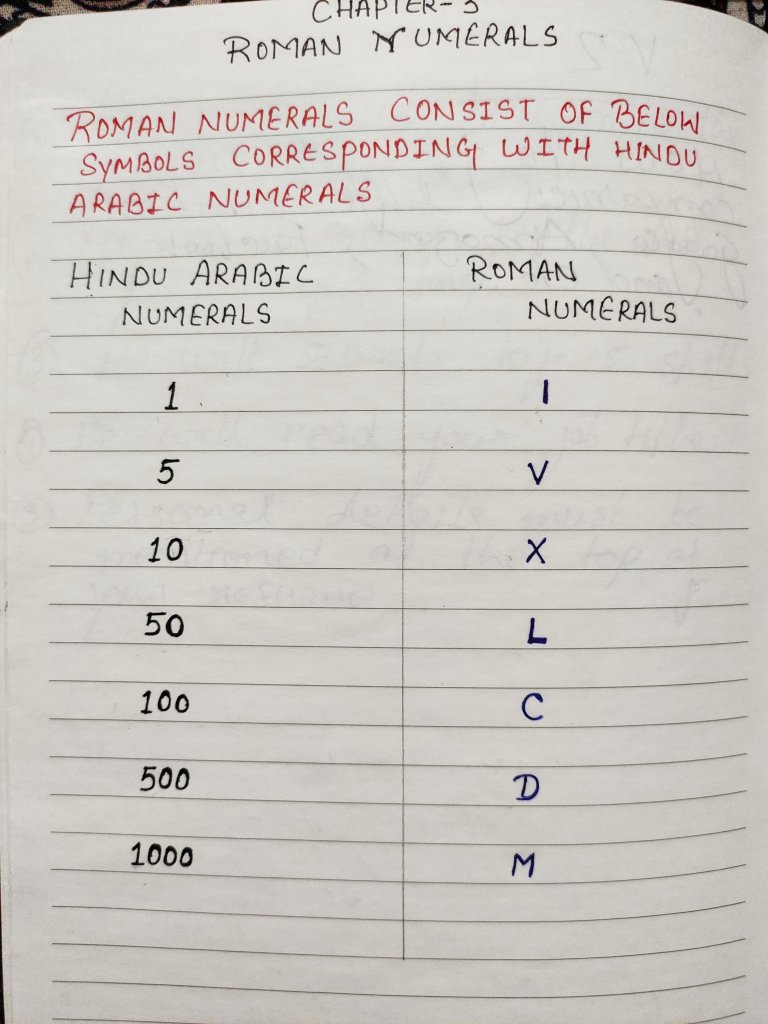 CHAPTER-3
ROMAN NUMERALS
ROMAN NUMERALS CONSIST OF BELOW
SYMBOLS CORRESPONDING WITH HINDU
ARABIC NUMERALS
HINDU ARABIC NUMERALS ROMAN NUMERALS
1 I
5 V
10 X
50 L
100 C
500 D
1000 M